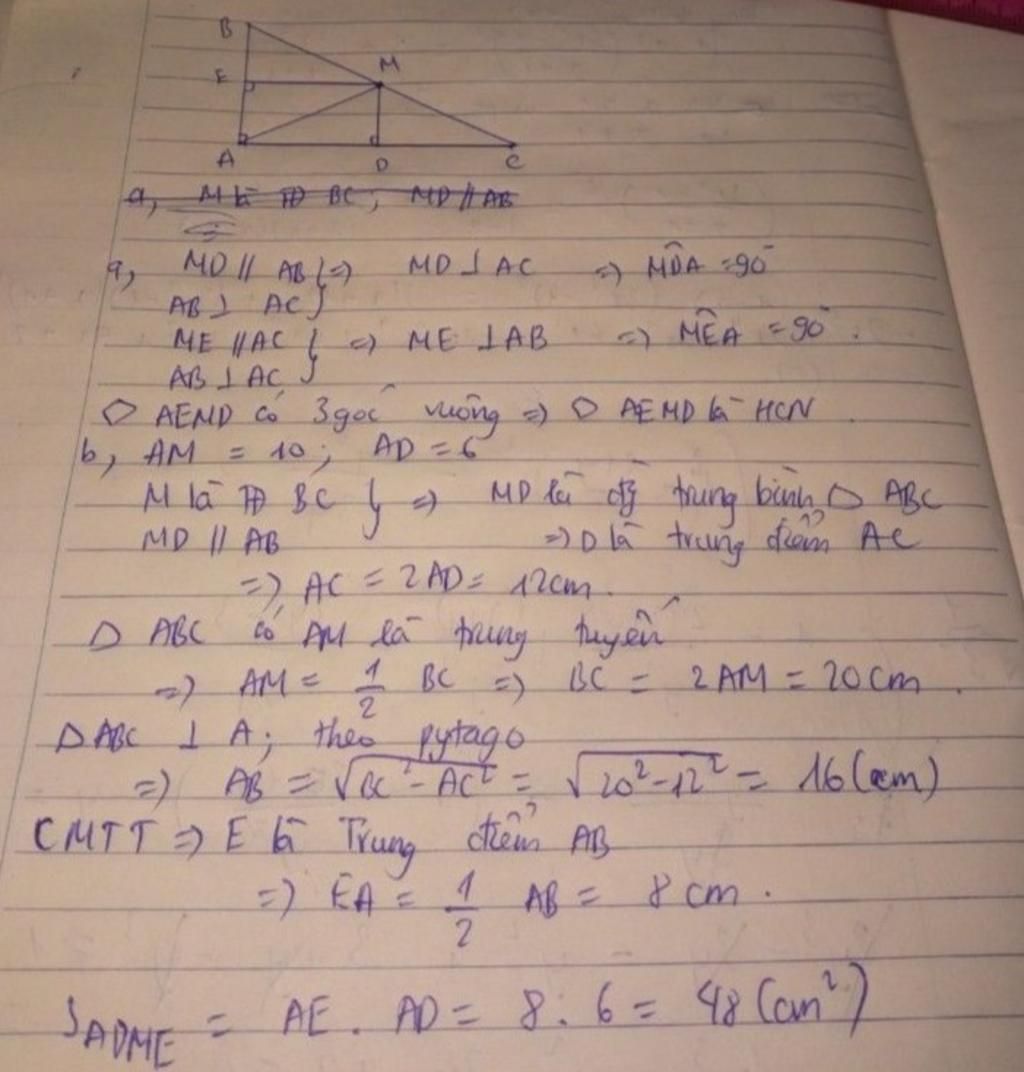 B
E
M
A
D
C
a, M là TĐ BC ; MD // AB
a, MD // AB } => MD ⊥ AC => MD̂A = 90°
AB ⊥ AC
ME // AC } => ME ⊥ AB => MÊA = 90° .
AB ⊥ AC
▱ AEMD có 3 góc vuông => ▱ AEMD là HCN .
b, AM = 10 ; AD = 6
M là TĐ BC } => MD là đg trung bình △ ABC
MD // AB => D là trung điểm AC
=> AC = 2AD = 12cm .
△ ABC có AM là trung tuyến
=> AM = 1/2 BC => BC = 2AM = 20cm .
△ABC ⊥ A ; theo pytago
=> AB = √BC² - AC² = √20² - 12² = 16 (cm)
CMTT => E là Trung điểm AB
=> EA = 1/2 AB = 8 cm .
S ADME = AE . AD = 8 . 6 = 48 (cm²)